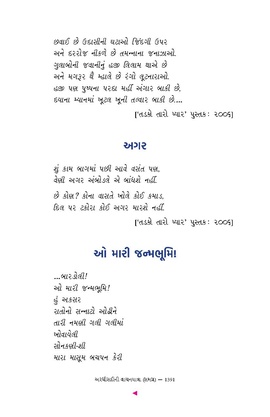 છવાઈ છે ઉદાસીની ઘટાઓ જિંદગી ઉપર
અને દરરોજ નીકળે છે તમન્નાના જનાઝાઓ.
ગુલાબોની જવાનીનું હજી લિલામ થાએ છે
અને મગરૂર થૈ મ્હાલે છે રંગો લૂંટનારાઓ.
હજી પણ પુષ્પના પરદા મહીં અંગાર બાકી છે.
દયાના મ્યાનમાં ખૂટલ ખૂની તલ્વાર બાકી છે....
['તડકો તારો પ્યાર' પુસ્તક: ૨૦૦૬]
અગર
શું કામ બાગમાં પછી આવે વસંત પણ,
વેણી અગર અંબોડલે એ બાંધશે નહીં.
છે કોણ? કોના વાસતે ખોલે કોઈ કમાડ,
દિલ પર ટકોરા કોઈ અગર મારશે નહીં.
['તડકો તારો પ્યાર' પુસ્તક: ૨૦૦૬]
ઓ મારી જન્મભૂમિ!
...બારડોલી!
ઓ મારી જન્મભૂમિ!
હું અકસર
રાતોનો સન્નાટો ઓઢીને
તારી નમણી ગલી ગલીમાં
ખોવાયેલી
સોનકણી-શી
મારા માસૂમ બચપન કેરી